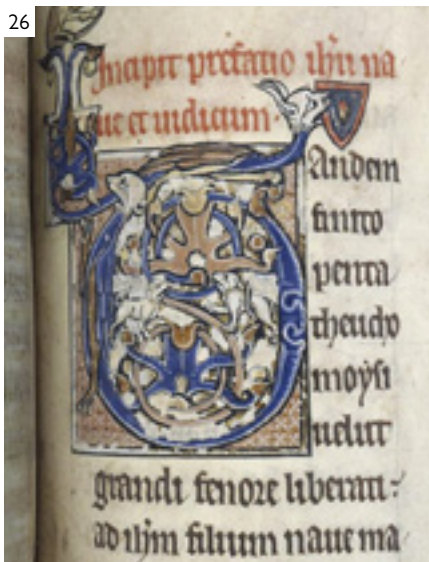 26
Incipit prefatio ihu na
ue et iudicum.
TAndem
finito
penta
theucho
moysi
uelut
grandi fenore liberati:
ad ihm filium naue ma